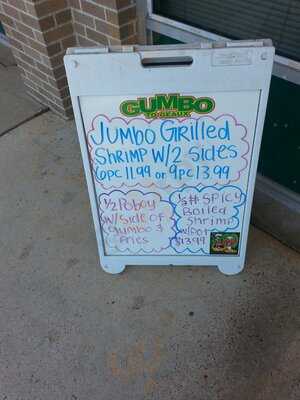 GUMBO
TO GEAUX
JUMBO GRilled
SHRIMP W/2 Sides
6pc 11.99 or 9pc 13.99
1/2 Poboy
W/Side of
gumbo &
Fries
1/2# SPicy
Boiled
Shrimp
w/Pot
$13.99